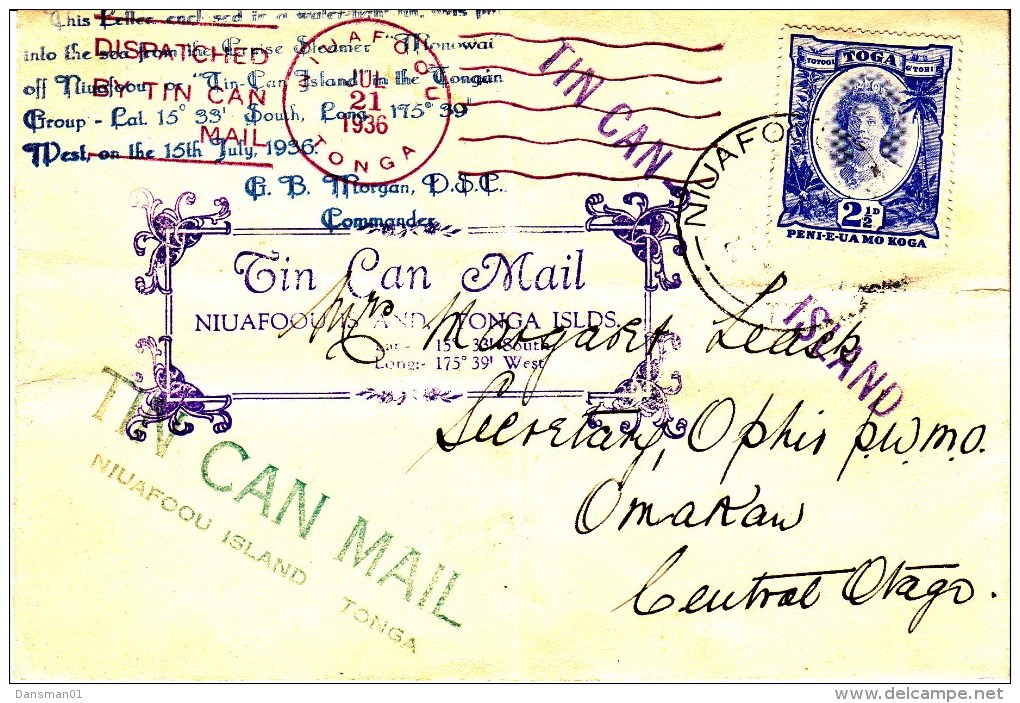 This Letter, enclosed in a water-tight tin, was put
into the sea from the Cruise Steamer "Monowai"
off Niuafoou or "Tin-Can Island" in the Tongan
Group - Lat. 15° 33' South, Long. 175° 39'
West, on the 15th July, 1936.
G. B. Morgan, D.S.C.
Commander.
DISPATCHED
BY TIN CAN
MAIL
NIUAFOOU
JUL
21
1936
TONGA
TIN CAN
ISLAND
NIUAFOO
TOTOGI
TOGA
GTOHI
2½D
PENI-E-UA MO KOGA
Tin Can Mail
NIUAFOOU ISLAND, TONGA ISLDS.
Lat:- 15° 33' South
Long:- 175° 39' West
Mrs Margaret Leask
Secretary, Ophir P.W.M.O.
Omakau
Central Otago.
TIN CAN MAIL
NIUAFOOU ISLAND TONGA
Dansman01
delcampe.net